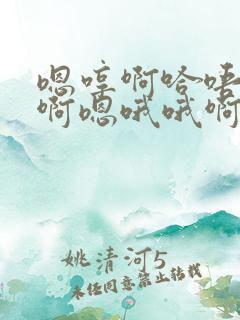 嗯哼啊哈唔
啊嗯哦哦啊
姚清河5
未经同意禁止转载